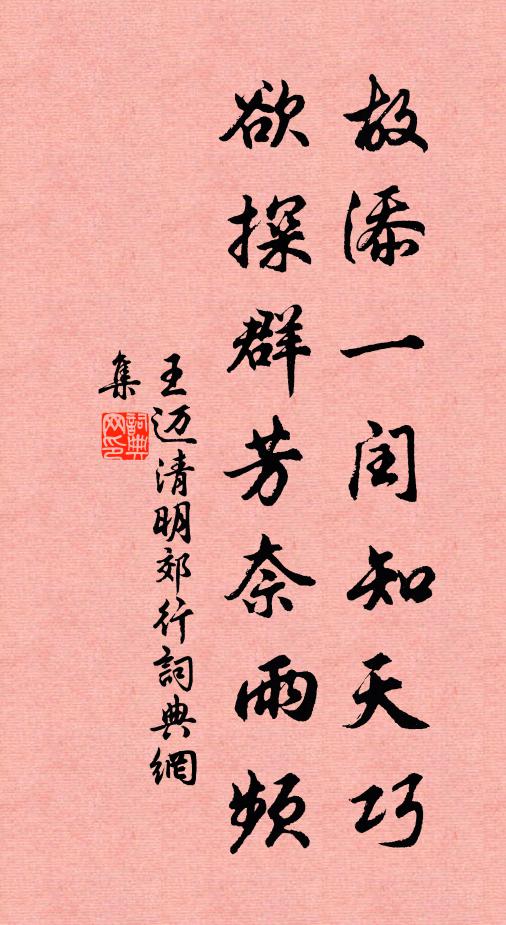 故添一闰知天巧
欲探群芳奈雨频
王迈清明郊行詞典網
集
詞典网印